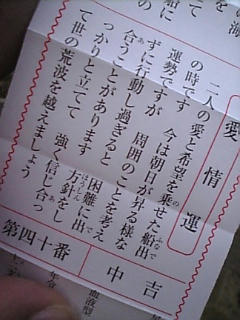 愛情運
二人の愛と希望を乗せた船出
の時です 今は朝日が昇る様な
運勢ですが 周囲のことを考え
ずに行動し過ぎると 困難に出
合うことがあります 方針をし
っかりと立てて 強く信じ合っ
て世の荒波を越えましょう
第四十番
中吉
血液型